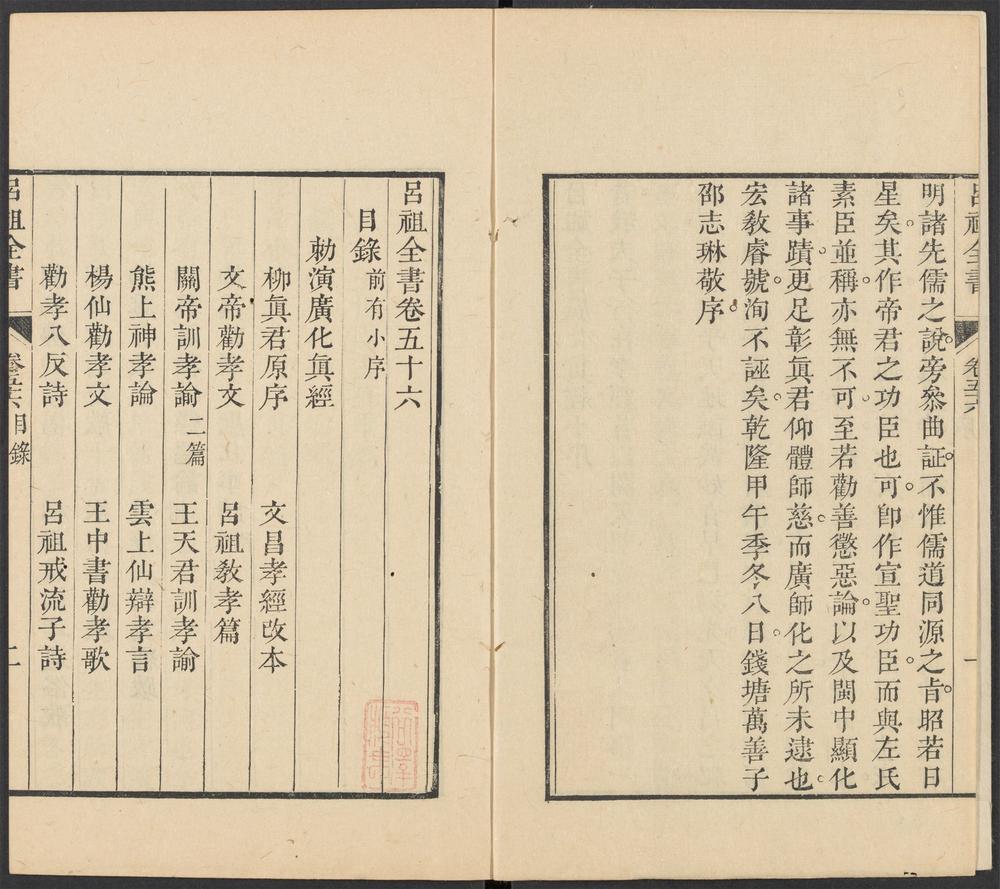 呂祖全書
卷五六
一
明諸先儒之說。旁叅曲証。不惟儒道同源之㫖。昭若日
星矣。其作帝君之功臣也可。卽作宣聖功臣。而與左氏
素臣並稱。亦無不可。至若勸善懲惡論。以及閩中顯化
諸事蹟。更足彰眞君仰體師慈。而廣師化之所未逮也。
宏敎睿號。洵不誣矣。乾隆甲午季冬八日。錢塘萬善子
邵志琳敬序。
呂祖全書卷五十六
目錄 前有小序
勅演廣化眞經
柳眞君原序 文昌孝經改本
文帝勸孝文 呂祖敎孝篇
關帝訓孝諭二篇 王天君訓孝諭
熊上神孝論 雲上仙辯孝言
楊仙勸孝文 王中書勸孝歌
勸孝八反詩 呂祖戒流子詩
呂祖全書
卷五六目錄
二